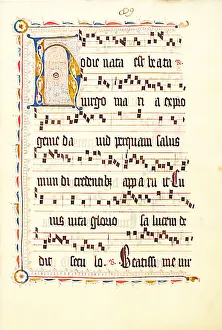 Hodie nata est beata
uirgo maria ex pro
genie dauid per quam salus
mundi credentibus apparuit Cu
ius uita gloriosa lucem de
dit seculo. Beatissime uir